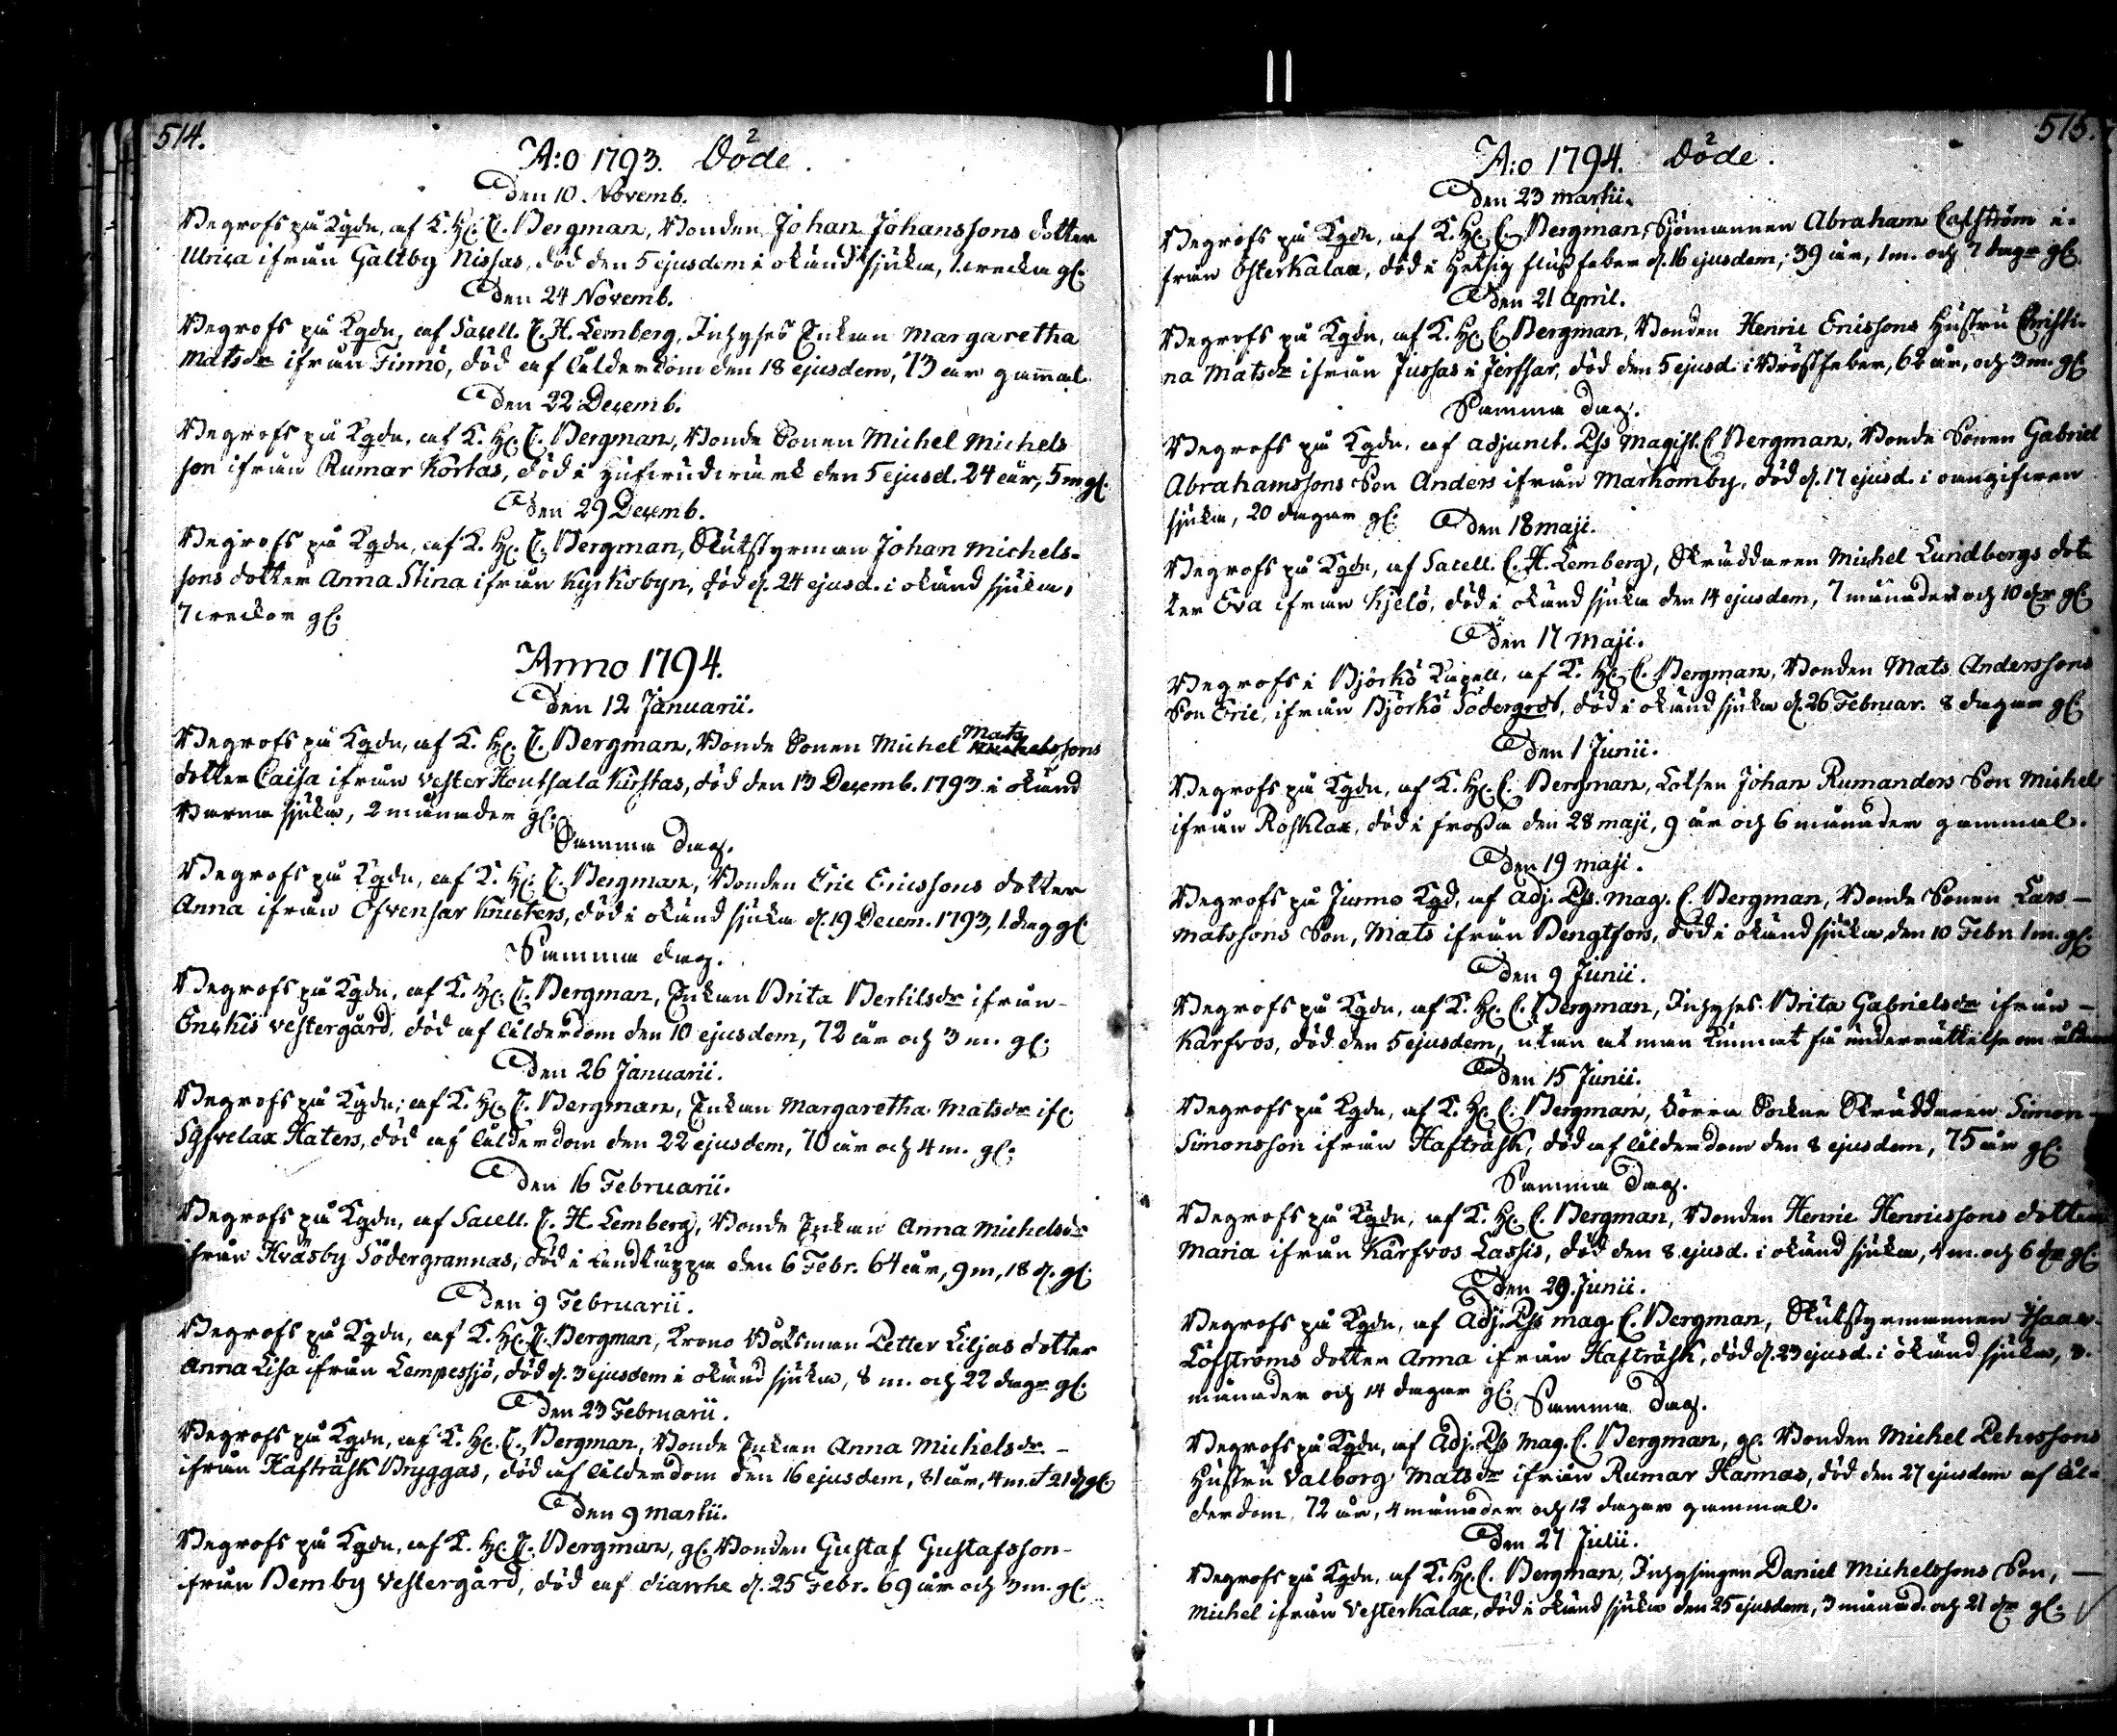 514.
A:o 1793. Döde.
Den 10 Novemb.
Begrofs på Kgdn, af K. H. C. Bergman, Bonden Johan Johanssons dotter
Ulrica ifrån Galtby Nissas, död den 5 ejusdem i okänd sjuka, 1. wecka gl.
Den 24 Novemb.
Begrofs på Kgdn, af Sacell. C. H. Lemberg, Inhyses Enkan Margaretha
Matsdr ifrån Finnö, död af ålderdom den 18 ejusdem, 73 åar gamal.
Den 22 Decemb.
Begrofs på Kgdn, af K. H. C. Bergman, Bonde Sonen Michel Michels
son ifrån Rumar Körtas, död i den 5 ejusd. 24 åar, 5 m gl.
Den 29 Decemb.
Begrofs på Kgdn, af K. H. C. Bergman, Skutstyrman Johan Michels-
sons dotter Anna Stina ifrån Kyrkobyn, död d. 24 ejusd. i okänd sjuka,
7 weckor gl.
Anno 1794.
Den 12 Januarii.
Begrofs på Kgdn, af K. H. C. Bergman, Bonde Sonen Michel Mats sons
dotter Caisa ifrån Vester Houtsala Kirstas, död den 13 Decemb. 1793 i okänd
Barna sjuka, 2 månader gl.
Samma dag.
Begrofs på Kgdn, af K. H. C. Bergman, Bonden Eric Ericssons dotter
Anna ifrån Ofvensar Knuters, död i okänd sjuka d. 19 Decem. 1793, 1. dag gl.
Samma dag.
Begrofs på Kgdn, af K. H. C. Bergman, Enkan Brita Bertilsdr ifrån-
Enskis Vestergård, död af ålderdom den 10 ejusdem, 72 åar och 3 m. gl.
Den 26 Januarii.
Begrofs på Kgdn, af K. H. C. Bergman, Enkan Margaretha Matsdr if.
Sgfvelax Haters, död af ålderdom den 22 ejusdem, 70 åar och 4 m. gl.
Den 16 Februarii.
Begrofs på Kgdn, af Sacell. C. H. Lemberg, Bonde Enkan Anna Michelsdr
ifrån Hväsby Södergrannas, död i den 6 Febr. 64 åar, 9 m, 18 d. gl.
Den 9 Februarii.
Begrofs på Kgdn, af K. H. C. Bergman, Krono Båtsman Petter Liljas dotter
Anna Lisa ifrån Lempessjö, död d. 3 ejusdem i okänd sjuka, 8 m. och 22 dagr gl.
Den 23 Februarii.
Begrofs på Kgdn, af K. H. C. Bergman, Bonde Enkan Anna Michelsdr -
ifrån Hafträsk Bryggas, död af ålderdom den 16 ejusdem, 81 åar, 4 m. & 21 d gl.
Den 9 Martii.
Begrofs på Kgdn, af K. H. C. Bergman, gl. Bonden Gustaf Gustafsson-
ifrån Demby Vestergård, död af diarrhe d. 25 Febr. 69 åar och 3 m. gl.
515.
A:o 1794. Döde.
Den 23 Martii.
Begrofs på Kgdn, af K. H. C. Bergman, Sjömannen Abraham Calström i-
från Österkalax, död i Hetsig flussfeber d. 16 ejusdem, 39 år, 1 m. och 7 dagr gl.
Den 21 April.
Begrofs på Kgdn, af K. H. C. Bergman, Bonden Henric Ericssons Hustru Christi-
na Matsdr ifrån Jussas i Jerfsar, död den 5 ejusd. i Bröstfeber, 62 år, och 3 m. gl.
Samma dag.
Begrofs på Kgdn, af adjunct. Pst Magist. C Bergman, Bonde Sonen Gabriel
Abrahamssons Son Anders ifrån Markomby, död d. 17 ejusd. i oangifven
sjuka, 20 dagar gl.
Den 18 maji.
Begrofs på Kgdn, af Sacell. C. H. Lemberg, Skräddaren Michel Lundbergs dot
ter Eva ifrån Kjelö, död i okänd sjuka den 14 ejusdem, 7 månader och 10 dr gl.
Den 17 Maji.
Begrofs i Björkö Kapell, af K. H. C. Bergman, Bonden Mats Anderssons
Son Eric, ifrån Björkö Södergrds, död i okänd sjuka d. 26 Februar. 8 dagar gl.
Den 1 Junii.
Begrofs på Kgdn, af K. H. C. Bergman, Lotsen Johan Rumanders Son Michel
ifrån Rosklax, död i frossa den 28 maji, 9 år och 6 månader gammal.
Den 19 maji.
Begrofs på Jurmo Kgd, af Adj. Pst. Mag. C. Bergman, Bonde Sonen Lars -
Matssons Son, Mats ifrån Bengtsors, död i okänd sjuka den 10 Febr. 1 m. gl.
Den 9 Junii.
Begrofs på Kgdn, af K. H. C. Bergman, Inhyses Brita Gabrielsdr ifrån -
Karfvos, död den 5 ejusdem, utan at man kunnat få underrättelse om ålderen
Den 15 Junii.
Begrofs på Kgdn, af K. H. C. Bergman, Förra Sockne Skräddaren Simon -
Simonsson ifrån Hafträsk, död af ålderdom den 8 ejusdem, 75 år gl.
Samma dag.
Begrofs på Kgdn, af K. H. C. Bergman, Bonden Henric Henricssons dotter
Maria ifrån Kärfvos Lassis, död den 8 ejusd. i okänd sjuka, 4 m. och 6 dr gl.
Den 29. Junii.
Begrofs på Kgdn, af Adj. Pst Mag. C. Bergman, Skutstyrmannen Isaac
Löfströms dotter Anna ifrån Hafträsk, död d. 23 ejusd. i okänd sjuka, 3.
månader och 14 dagar gl.
Samma dag.
Begrofs på Kgdn, af Adj. Pst Mag. C. Bergman, gl. Bonden Michel Pehrssons
Hustru Valborg Matsdr ifrån Rumar Hannas, död den 27 ejusdem af ål-
derdom, 72 år, 4 månader och 12 dagar gammal.
Den 27 Julii.
Begrofs på Kgdn, af K. H. C. Bergman, Inhysingen Daniel Michelssons Son, -
Michel ifrån Vesterkalax, död i okänd sjuka den 25 ejusdem, 3 månad. och 21 dr gl.